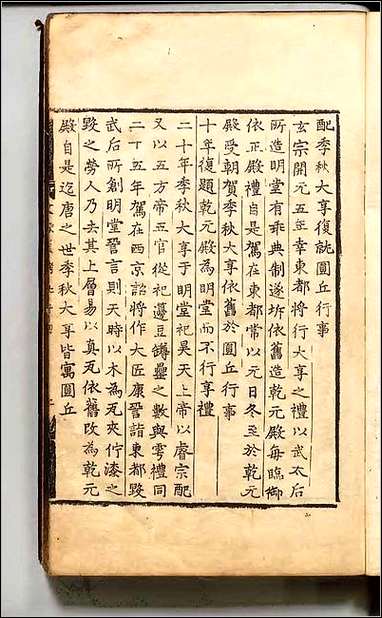 配季秋大享復就圓丘行事
玄宗開元五年幸東都將行大享之禮以武太后
所造明堂有乖典制遂拆依舊造乾元殿每臨御
依正殿禮自是駕在東都常以元日冬至於乾元
殿受朝賀季秋大享依舊於圓丘行事
十年復題乾元殿為明堂而不行享禮
二十年季秋大享于明堂祀昊天上帝以睿宗配
又以五方帝五官從祀籩豆罇罍之數與雩禮同
二十五年駕在西京詔將作大匠康䛒詣東都毀
武后所創明堂䛒言則天時以木為瓦夾佇漆之
毀之勞人乃去其上層易以真瓦依舊改為乾元
殿自是迄唐之世季秋大享皆寓圓丘